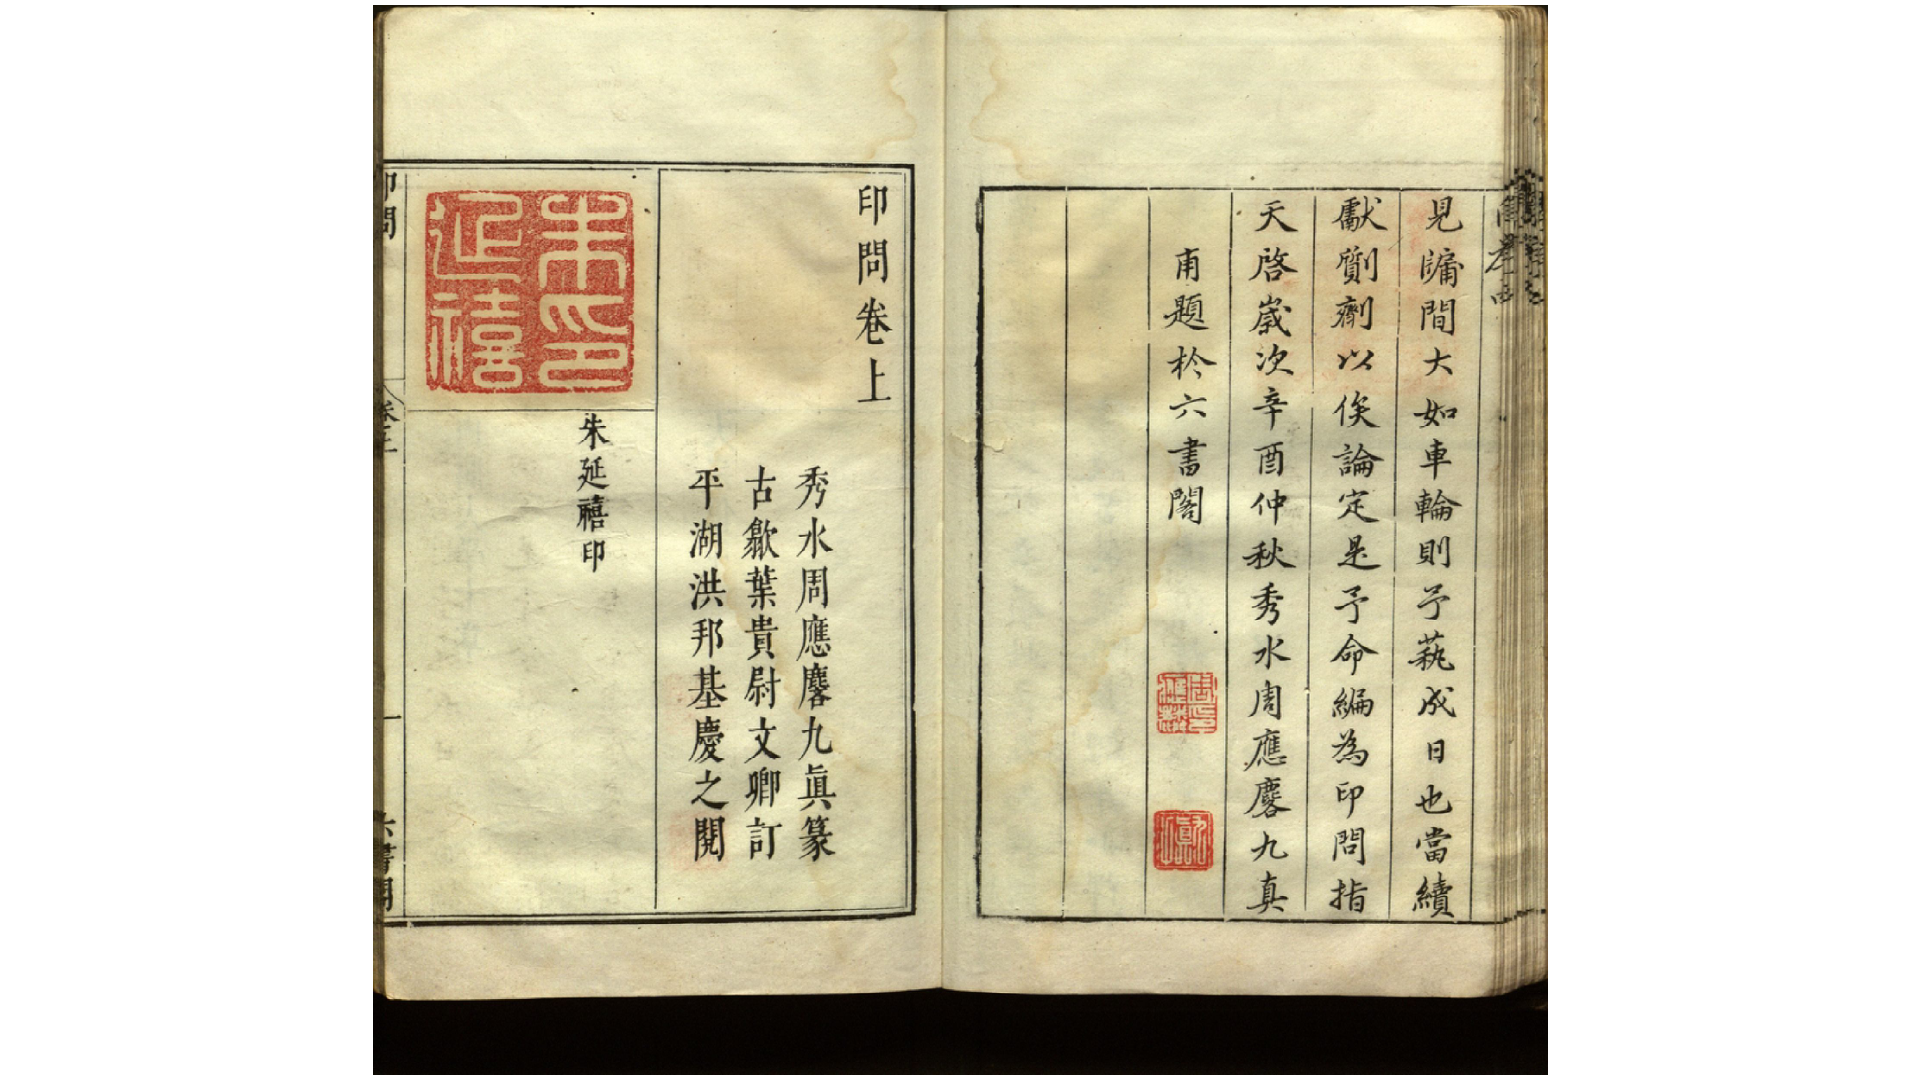 見牗間大如車輪則予蓺成日也當續
獻質劑以俟論定是予命編為印問指
天啓嵗次辛酉仲秋秀水周應麐九真
甫題於六書閣
印問卷上
秀水周應麐九眞篆
古歙葉貴尉文卿訂
平湖洪邦基慶之閱
朱印延禧
朱延禧印
印問
卷上
一
六書閣